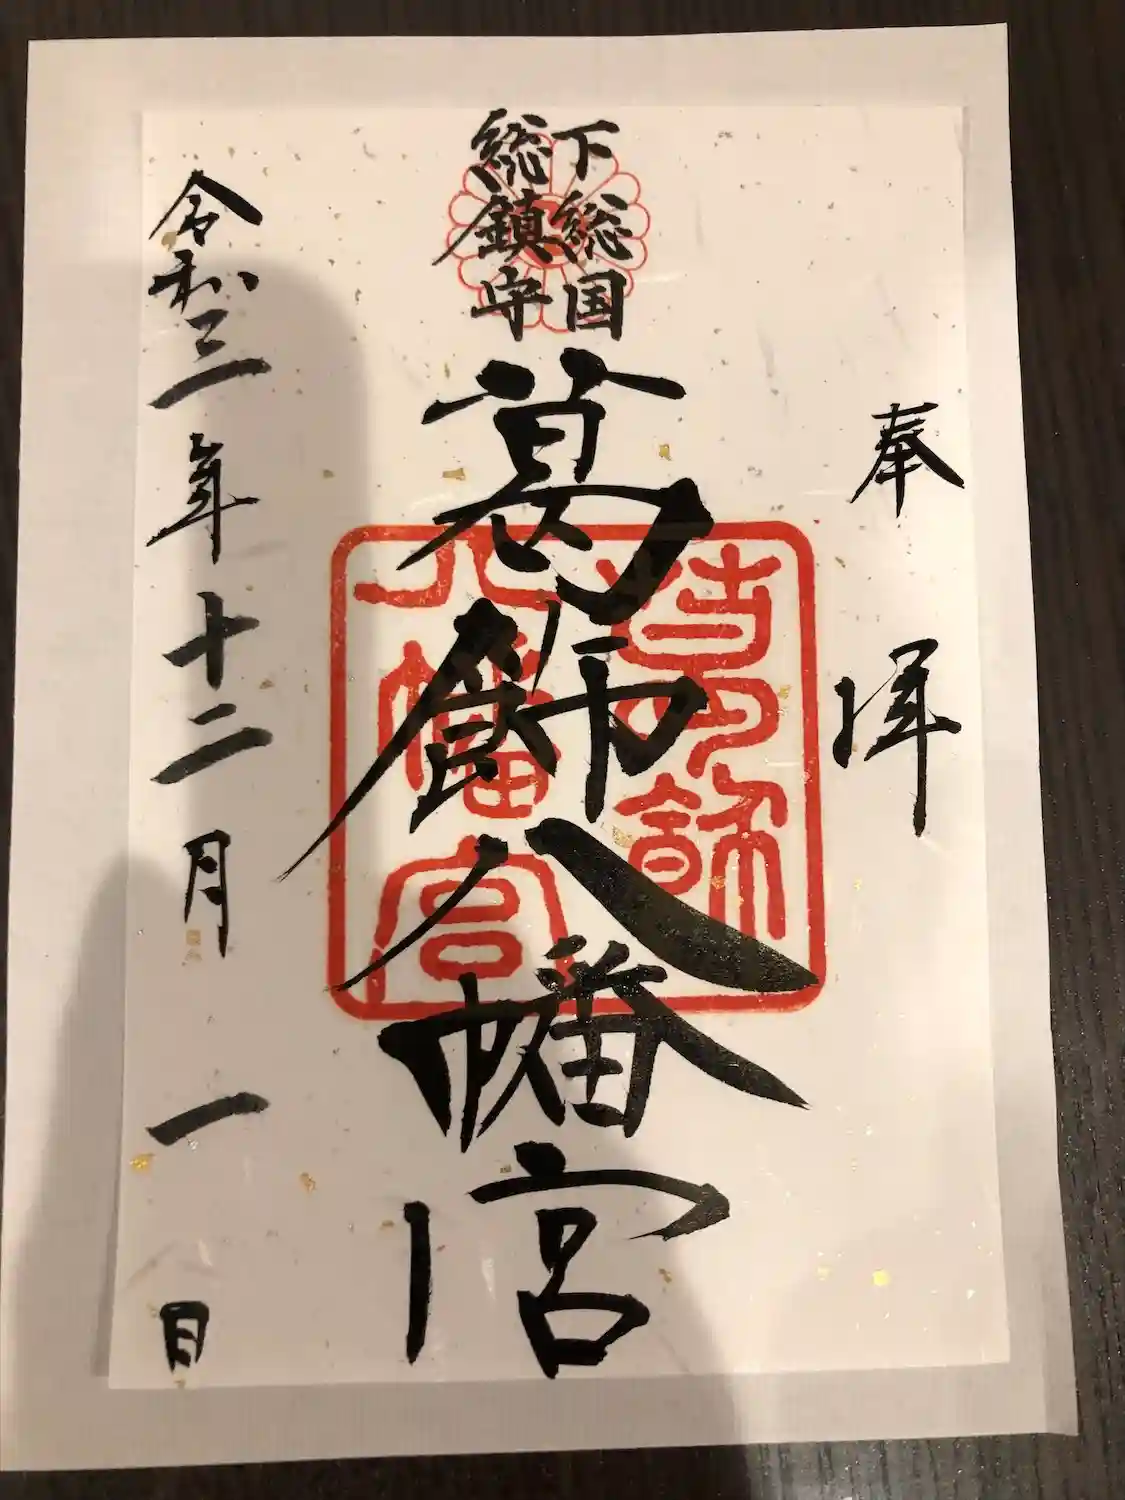 奉拝
下総国
総鎮守
葛飾八幡宮
葛飾
八幡宮
令和三年十二月一日